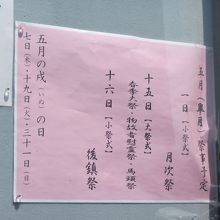 五月(皐月)祭事予定
一日[小祭式]
月次祭
十五日[大祭式]
春季大祭・物故者慰霊祭・馬頭祭
十六日[小祭式]
後鎮祭
五月の戌(いぬ)の日
七日(木)・十九日(火)・三十一日(日)